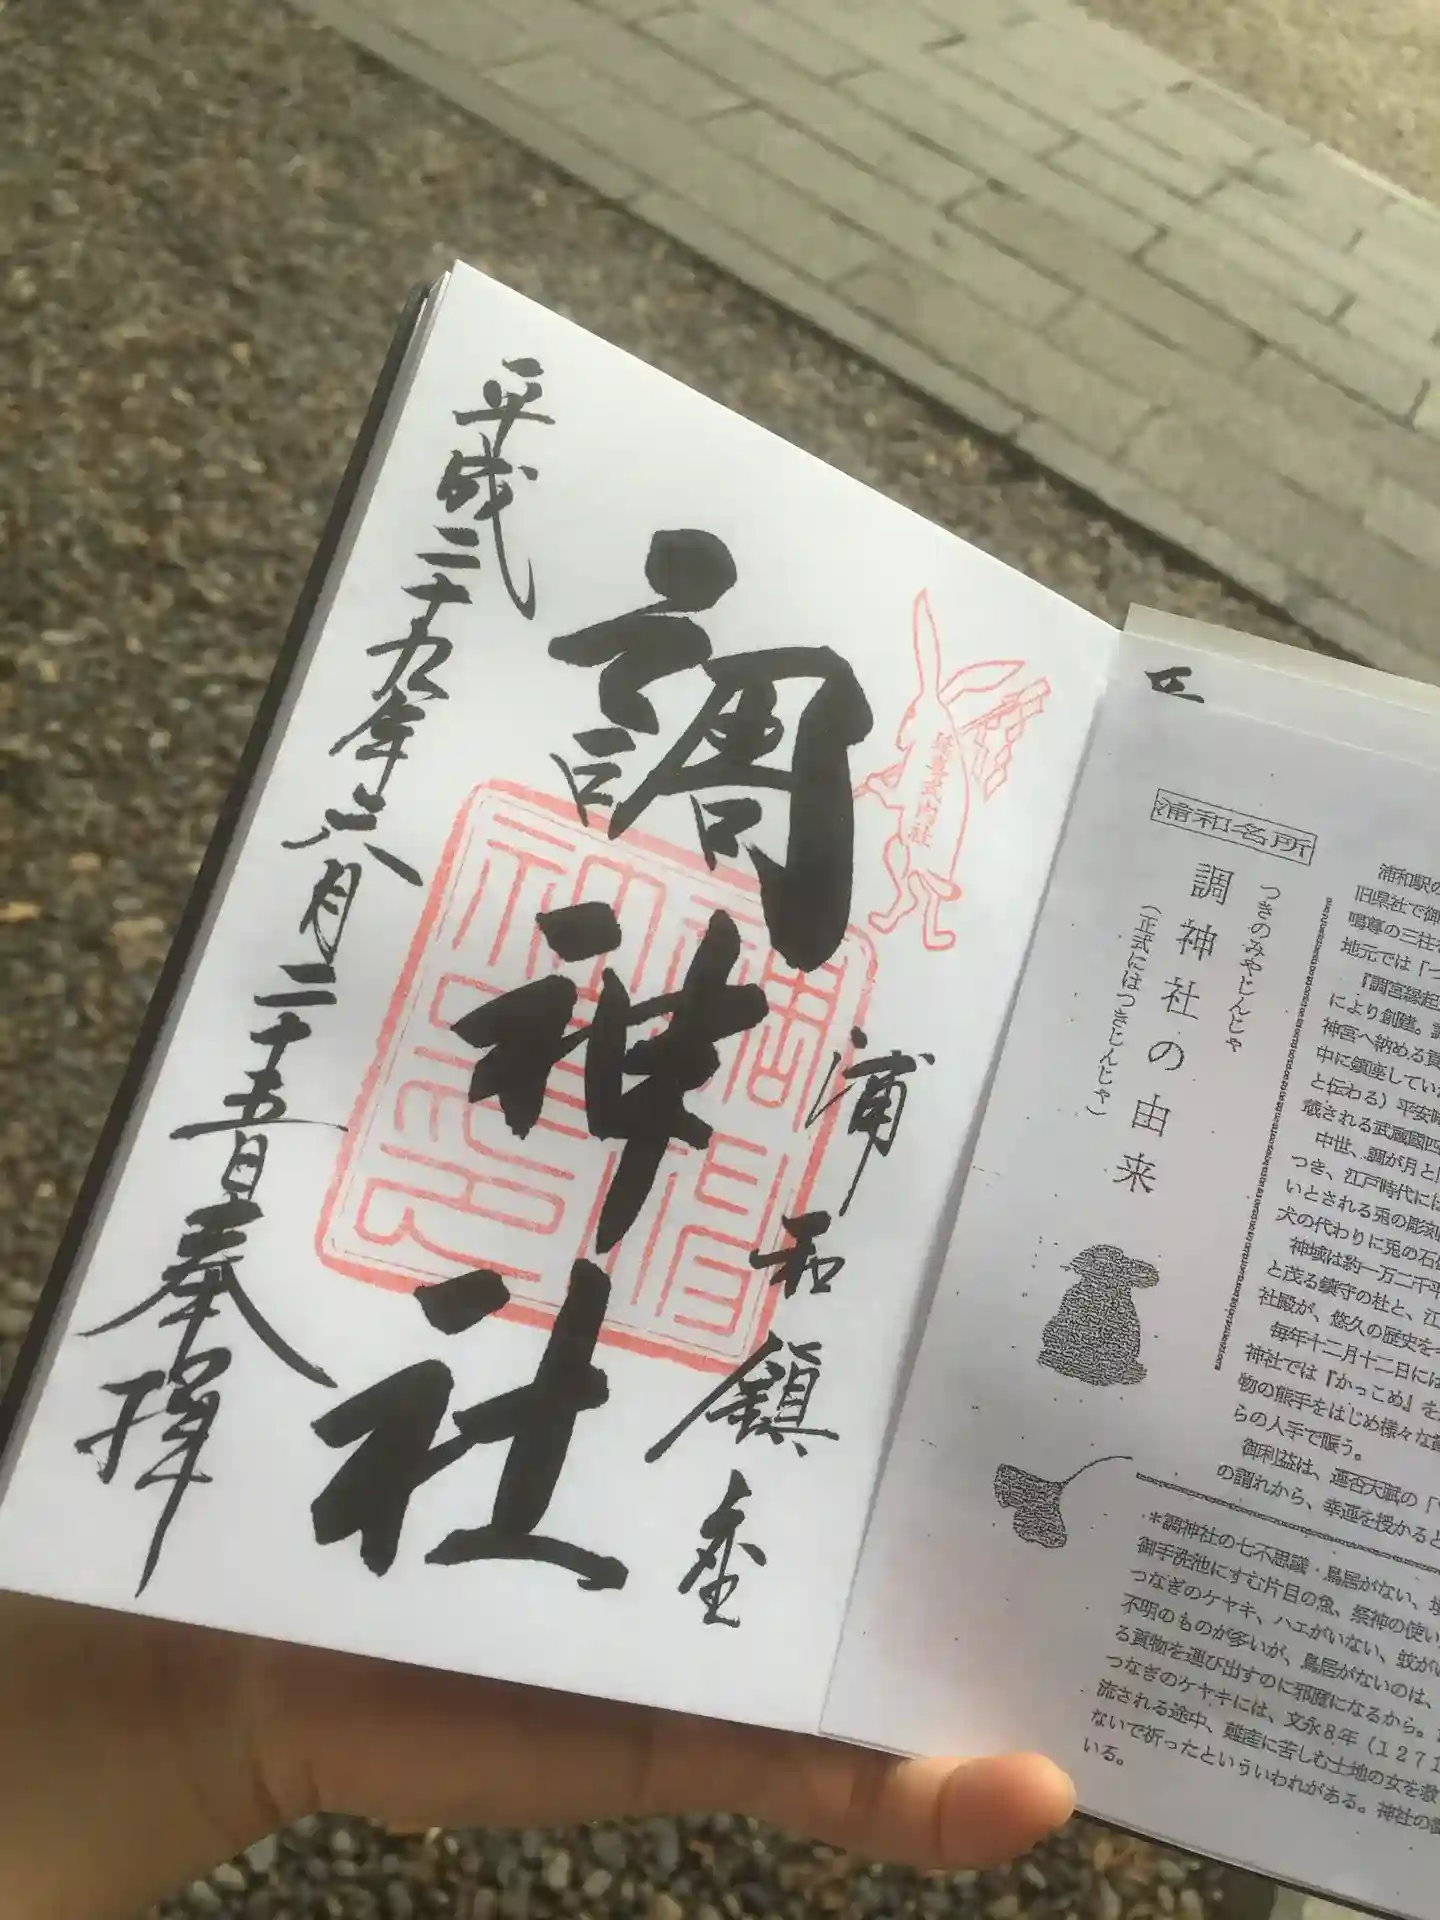 浦和鎮座
調神社
平成二十九年六月二十五日奉拝
浦和名所
つきのみやじんじゃ
調神社の由来
(正式にはつきじんじゃ)
浦和駅の
旧県社で御
地元では「つ
『調宮縁起
により創建。
神宮へ納める貢
中に鎮座してい
と伝わる)平安時
蔵される武蔵國四
中世、調が月と
つき、江戸時代には
いとされる兎の彫刻
犬の代わりに兎の石
神域は約一万二千平
と茂る鎮守の杜と、江
社殿が、悠久の歴史を
毎年十二月十二日には
神社では『かっこめ』を
物の熊手をはじめ様々な
らの人手で賑う。
御利益は、運否天賦の「
の謂れから、幸運を授かると
*調神社の七不思議・鳥居がない、
御手洗池にすむ片目の魚、祭神の使い
つなぎのケヤキ、ハエがいない、蚊がい
不明のものが多いが、鳥居がないのは、
る貢物を運び出すのに邪魔になるから。
つなぎのケヤキには、文永8年(1271
流される途中、難産に苦しむ土地の女を救
ないで祈ったといういわれがある。神社の
いる。